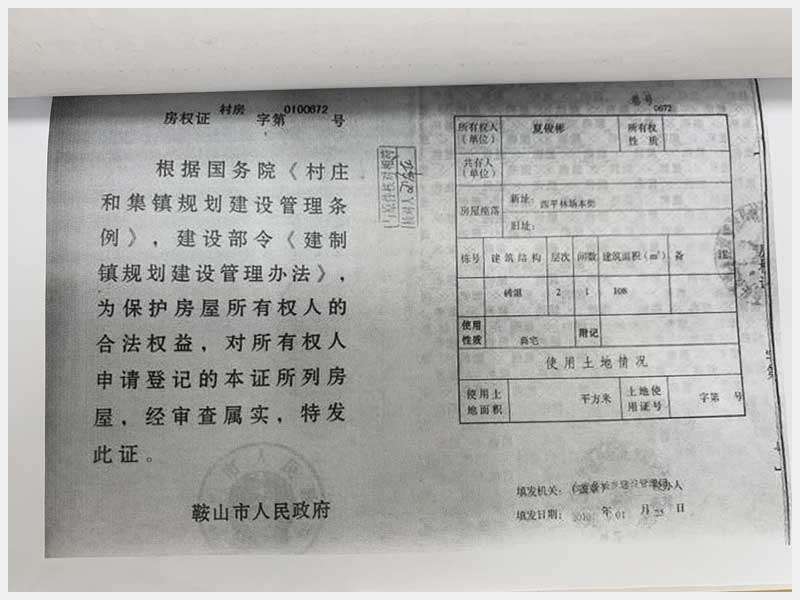 房权证 村房 字第 0100672 号
根据国务院《村庄
和集镇规划建设管理条
例》，建设部令《建制
镇规划建设管理办法》，
为保护房屋所有权人的
合法权益，对所有权人
申请登记的本证所列房
屋，经审查属实，特发
此证。
鞍山市人民政府
0672
所有权人（单位） 夏俊彬 所有权性质
共有人（单位）
房屋座落 新址： 四平林场本街
旧址：
栋号 建筑结构 层次 间数 建筑面积（m²） 备
砖混 2 1 108
使用性质 商宅 附记
使用土地情况
使用土地面积 平方米 土地使用证号 字第 号
填发机关：（盖章） 办人
填发日期： 2010 年 01 月 25 日